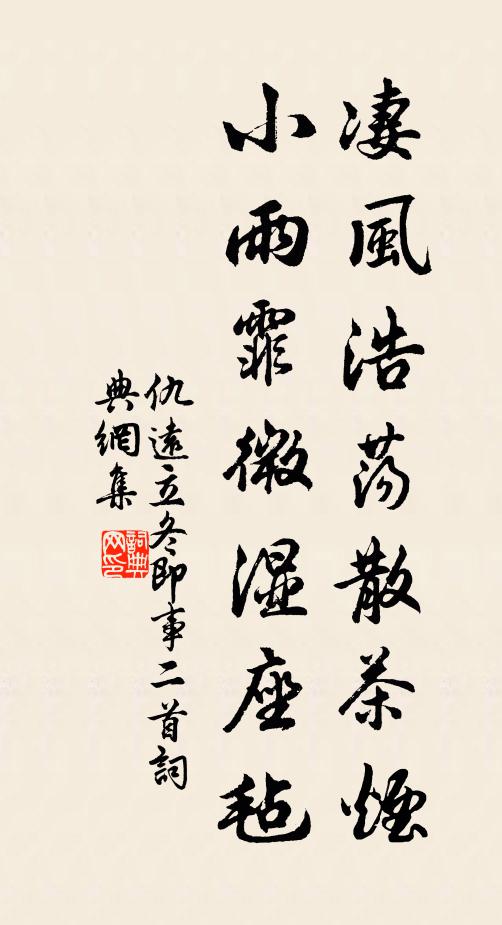 凄風浩荡散茶煙
小雨霏微濕座毡
仇遠立冬即事二首詞
典網集
詞典
网印